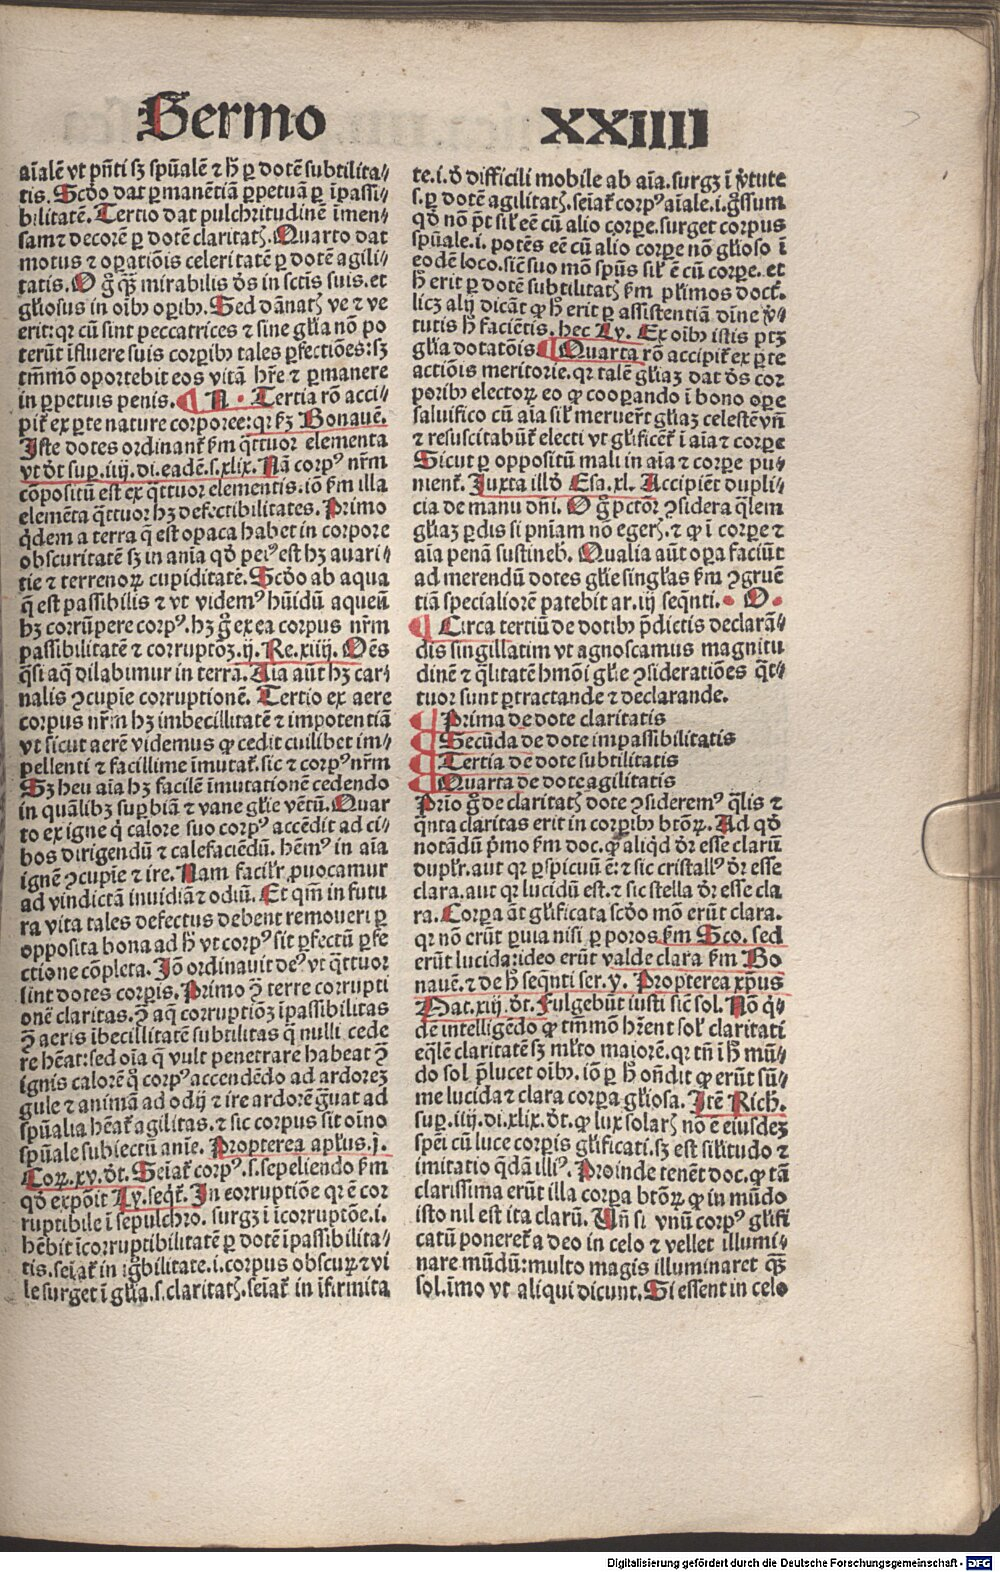 Sermo XXIIII
aīalē vt pn̄ti sꝫ spūalē ⁊ h̄ ꝑ dotē subtilita⸗
tis. Scd̄o dat ꝑmanētiā ꝑpetuā ꝑ īpassi⸗
bilitatē. Tertio dat pulchritudinē imen⸗
sam ⁊ decorē ꝑ dotē claritatꝭ. Quarto dat
motus ⁊ oꝑatiōis celeritatē ꝑ dotē agili⸗
tatis. O gͦ qꝫ̄ mirabilis d̄s in sctīs suis. et
gl̄iosus in oībꝰ oꝑibꝰ. Sed dānatꝭ ve ⁊ ve
erit: qꝛ cū sint peccatrices ⁊ sine gl̄ia nō po
terūt īfluere suis corꝑibꝰ tales ꝑfectiōes: sꝫ
tm̄mō oportebit eos vitā hr̄e ⁊ ꝑmanere
in ꝑpetuis penis. N. Tertia rō acci⸗
pit̄ ex ꝑte nature corporee: qꝛ ẜm Bonauē.
Iste dotes ordinant̄ ẜm q̄ttuor elementa
vt d̄r suꝑ. iiij. di. eadē. s. xlix. Nā corpꝰ nr̄m
cōpositū est ex q̄ttuor elementis. iō ẜm illa
elemēta q̄ttuor hꝫ defectibilitates. Primo
q̄dem a terra q̄ est opaca habet in corpore
obscuritatē sꝫ in anīa qd̄ peiꝰ est hꝫ auari⸗
tie ⁊ terrenoꝝ cupiditatē. Scd̄o ab aqua
q̄ est passibilis ⁊ vt videmꝰ hūidū aqueū
hꝫ corrūpere corpꝰ. hꝫ gͦ ex ea corpus nr̄m
passibilitatē ⁊ corruptōꝫ. ij. Re. xiiij. Oēs
q̄si aq̄ dilabimur in terrā. Aīa aūt hꝫ car⸗
nalis ꝯcupīe corruptionē. Tertio ex aere
corpus nr̄m hꝫ imbecillitatē ⁊ impotentiā
vt sicut aerē videmus ꝙ cedit cuilibet im⸗
pellenti ⁊ facillime īmutat̄. sic ⁊ corpꝰ nr̄m
Sꝫ heu aīa hꝫ facilē īmutationē cedendo
in quālibꝫ suꝑbiā ⁊ vane gl̄ie vētū. Quar
to ex igne q̇ calore suo corpꝰ accēdit ad ci⸗
bos dirigendū ⁊ calefaciēdū. hēmꝰ in aīa
ignē ꝯcupīe ⁊ ire. Nam facilr̄ ꝓuocamur
ad vindictā inuidiā ⁊ odiū. Et qm̄ in futu
ra vita tales defectus debent remoueri ꝑ
opposita bona ad h̄ vt corpꝰ sit ꝑfectū ꝑfe
ctione cōpleta. Jō ordinauit deꝰ vt q̄ttuor
sint dotes corꝑis. Primo ꝯ̄ terre corrupti
onē claritas. ꝯ̄ aq̄ corruptiōꝫ īpassibilitas
ꝯ̄ aeris ībecillitatē subtilitas q̄ nulli cede
re hēat: sed oīa q̄ vult penetrare habeat ꝯ̄
ignis calorē q̇ corpꝰ accendēdo ad ardoreꝫ
gule ⁊ animā ad odij ⁊ ire ardorē g̅uat ad
spūalia hēat̄ agilitas. ⁊ sic corpus sit oīno
spūale subiectū anīe. Propterea apl̄us. j.
Coꝝ. xv. d̄t. Seīat̄ corpꝰ. s. sepeliendo ẜm
qd̄ expōit Ly. seq̄t̄. In corruptiōe qꝛ ē cor
ruptibile ī sepulchro. surgꝫ ī īcorruptōe. i.
hēbit īcorruptibilitatē ꝑ dotē īpassibilita⸗
tis. seīat̄ in ignobilitate. i. corpus obscuꝝ ⁊ vi
le surget ī gl̄ia. s. claritatꝭ. seīat̄ in īfirmita
te. i. d̄ difficili mobile ab aīa. surgꝫ ī v̄tute
s. ꝑ dotē agilitatꝭ. seīat̄ corpꝰ aīale. i. g̊ssum
qd̄ nō p̄t sil̄ eē cū alio corꝑe. surget corpus
spūale. i. potēs eē cū alio corꝑe nō gl̄ioso ī
eodē loco. sic̄ suo mō spūs sil̄ ē cū corꝑe. et
h̄ erit ꝑ dotē subtilitatꝭ ẜm pl̄imos doct̄.
licꝫ alij dicāt ꝙ h̄ erit ꝑ assistentiā diīne v̄⸗
tutis h̄ faciētis. hec Ly. Ex oībꝰ istis ptꝫ
gl̄ia dotatōis. Quarta rō accipit̄ ex ꝑte
actiōis meritorie. qꝛ talē gl̄iaꝫ dat d̄s cor
poribꝰ electoꝝ eo ꝙ cooꝑando ī bono oꝑe
saluifico cū aīa sil̄ meruer̄t gl̄iaꝫ celestē vn̄
⁊ resuscitabūt̄ electi vt gl̄ificēt̄ ī aīa ⁊ corꝑe
Sicut ꝑ oppositū mali in aīa ⁊ corꝑe pu⸗
nient̄. Iuxta illd̄ Esa. xl. Accipiēt dupli⸗
cia de manu dn̄i. O gͦ pctōr̄ ꝯsidera q̄lem
gl̄iaꝫ ꝑdis si pn̄iam nō egerꝭ. ⁊ ꝙ ī corꝑe ⁊
aīa penā sustinebꝭ. Qualia aūt oꝑa faciūt
ad merendū dotes gl̄ie singl̄as ẜm ꝯgruē
tiā specialiorē patebit ar. iij seqn̄ti. O.
Circa tertiū de dotibꝰ p̄dictis declarā⸗
dis singillatim vt agnoscamus magnitu
dinē ⁊ q̄litatē hmōi gl̄ie ꝯsideratiōes q̄t⸗
tuor sunt ꝑtractande ⁊ declarande.
Prima de dote claritatis
Secūda de dote impassibilitatis
Tertia de dote subtilitatis
Quarta de dote agilitatis
Prīo gͦ de claritatꝭ dote ꝯsideremꝰ q̄lis ⁊
q̄nta claritas erit in corꝑibꝰ btōꝝ. Ad qd̄
notādū p̄mo ẜm doc. ꝙ aliqͥd d̄r esse clarū
duplr̄. aut qꝛ ꝑspicuū ē: ⁊ sic cristallꝰ d̄r esse
clara. aut qꝛ lucidū est. ⁊ sic stella d̄r esse cla
ra. Corꝑa āt gl̄ificata scd̄o mō erūt clara.
qꝛ nō erūt ꝑuia nisi ꝑ poros ẜm Sco. sed
erūt lucida: ideo erūt valde clara ẜm Bo
nauē. ⁊ de h̄ seqn̄ti ser. y. Propterea xp̄us
Mat. xiij. d̄t. Fulgebūt iusti sic̄ sol. Nō qͥ⸗
dē intelligēdo ꝙ tm̄mō hr̄ent sol̄ claritati
eq̄lē claritatē sꝫ ml̄to maiorē. qꝛ tn̄ ī h̄ mū⸗
do sol p̄lucet oībꝰ. iō ꝑ h̄ on̄dit ꝙ erūt sū⸗
me lucida ⁊ clara corꝑa gl̄iosa. Itē Rich.
suꝑ. iiij. di. xlix. d̄t. ꝙ lux solarꝭ nō ē eiusdeꝫ
spēi cū luce corꝑis gl̄ificati. sꝫ est sil̄itudo ⁊
imitatio q̄dā illiꝰ. Proinde tenēt doc. ꝙ tā
clarissima erūt illa corꝑa btōꝝ ꝙ in mūdo
isto nil est ita clarū. Vn̄ si vnū corpꝰ gl̄ifi
catū poneret̄ a deo in celo ⁊ vellet illumi⸗
nare mūdū: multo magis illuminaret qꝫ̄
sol. īmo vt aliqui dicunt. Si essent in celo
Digitalisierung gefördert durch die Deutsche Forschungsgemeinschaft - DFG